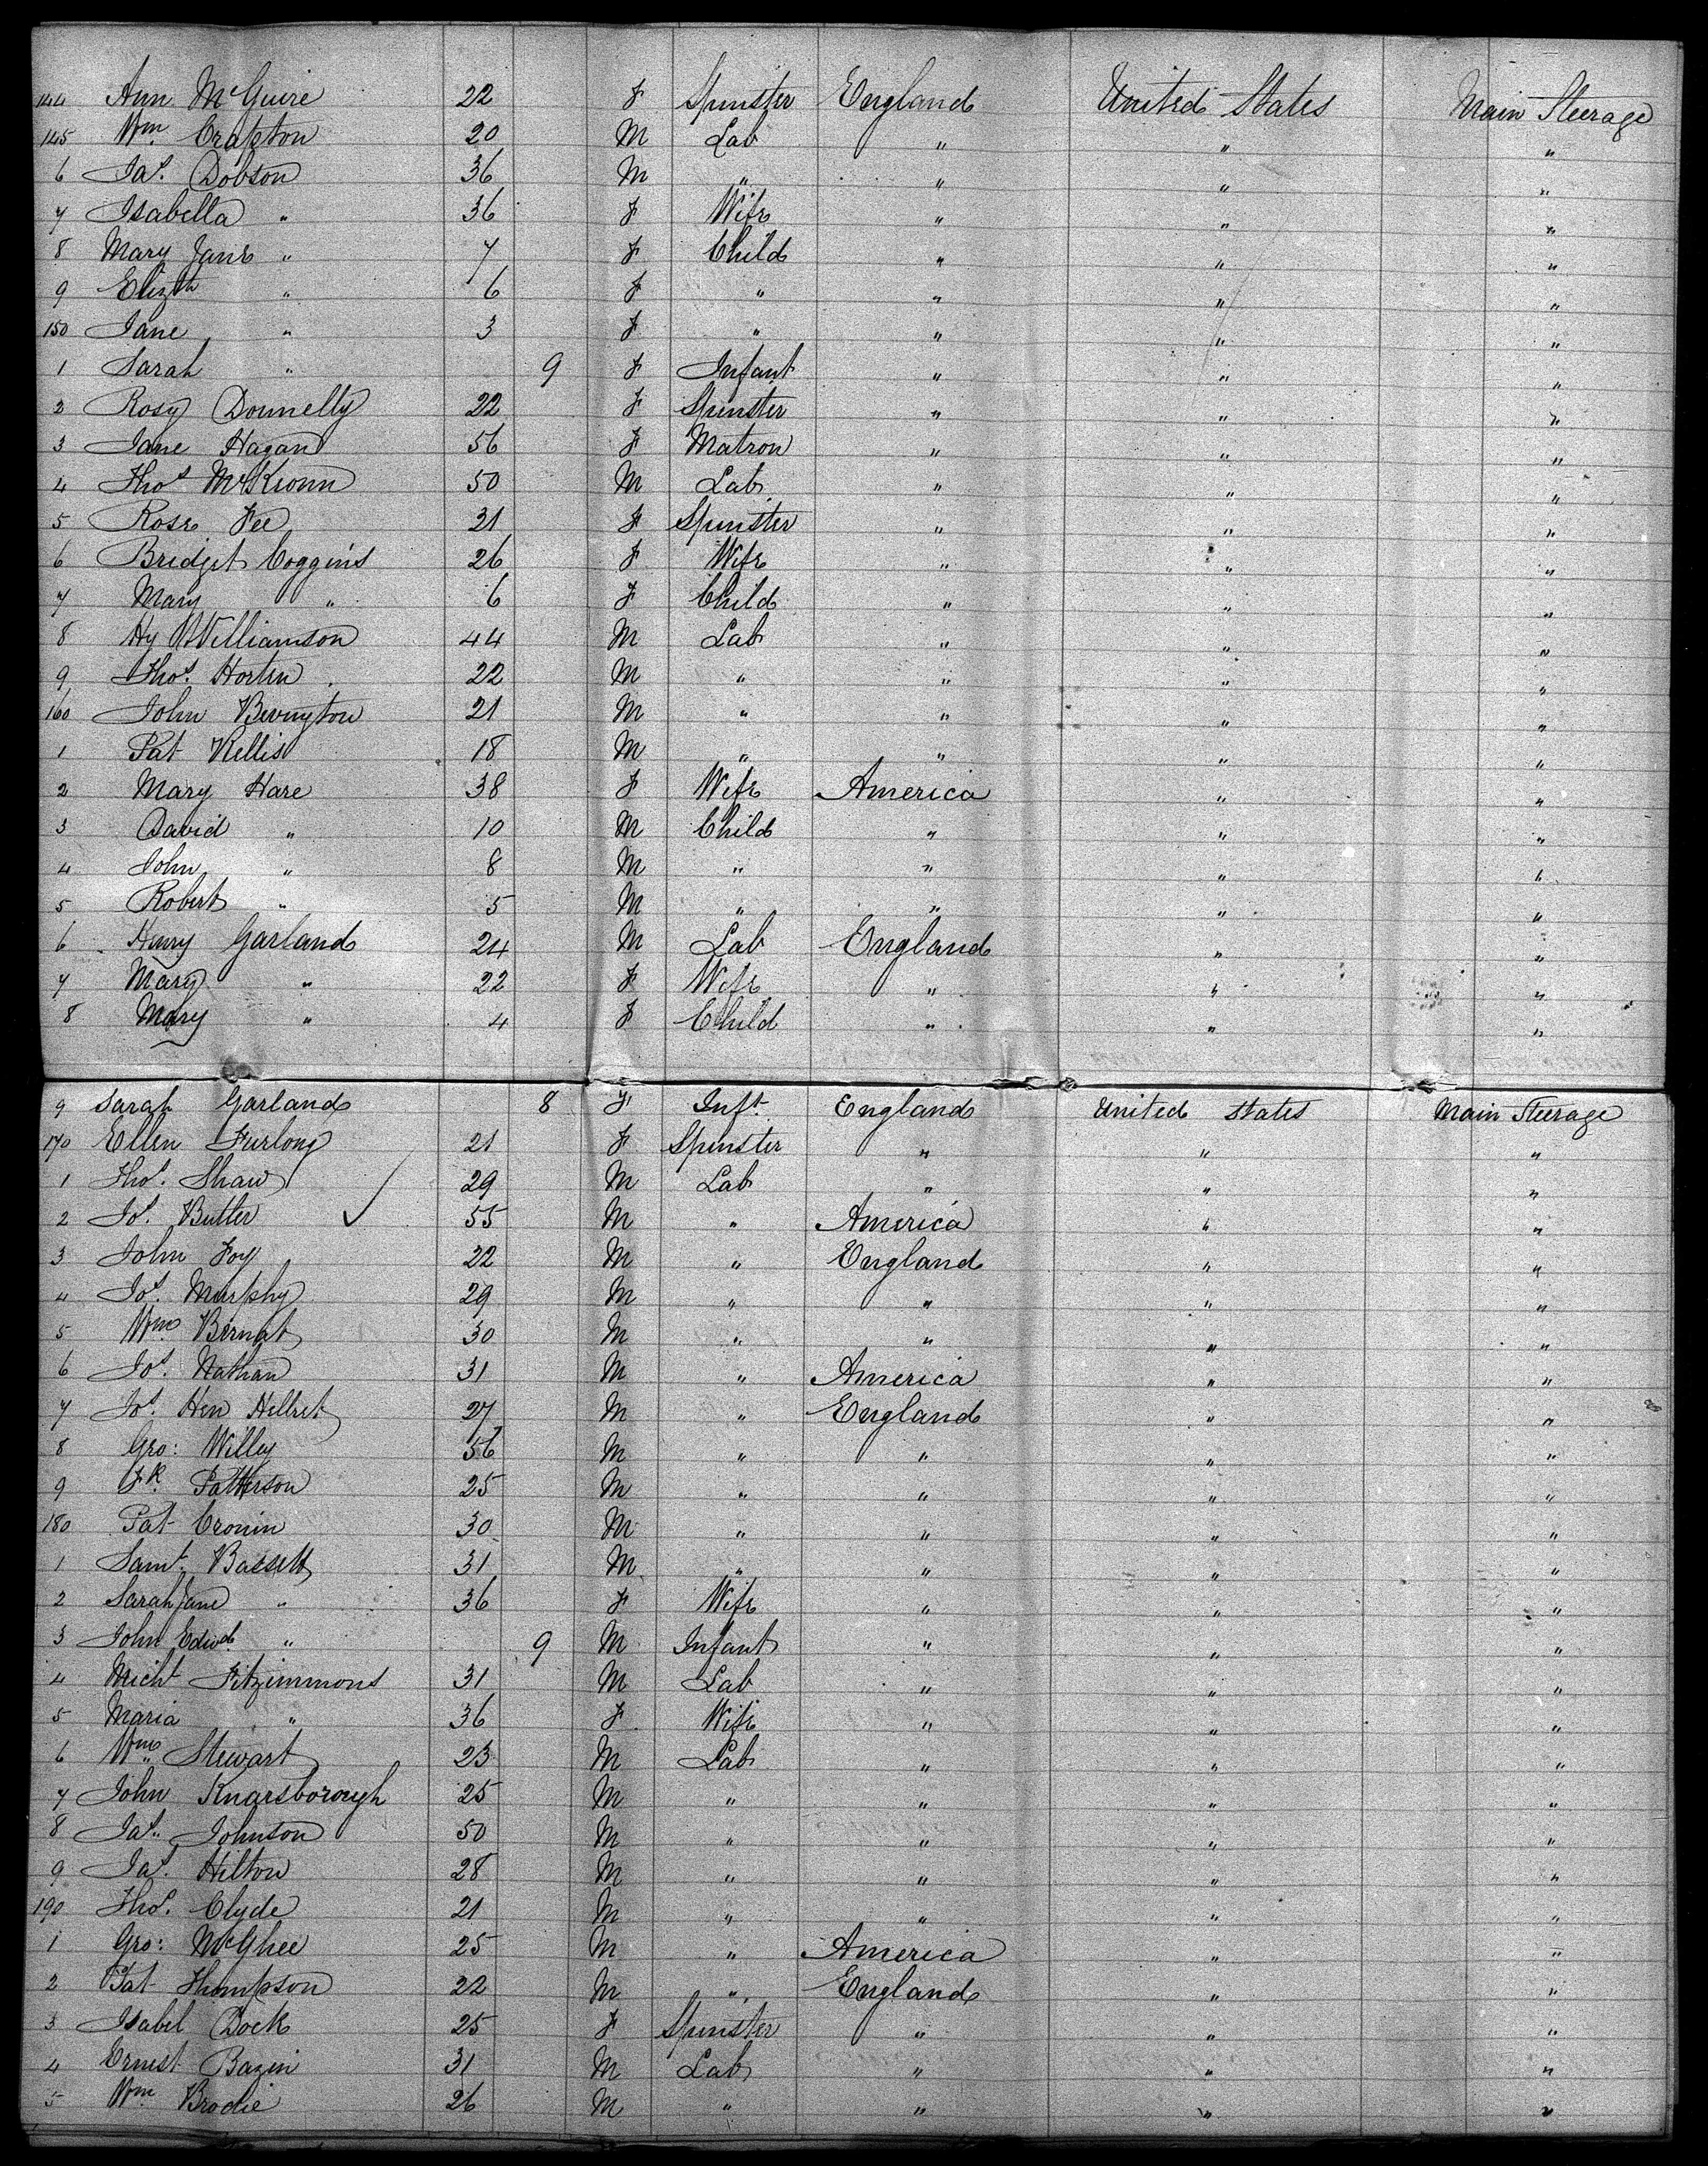 144 Ann McGuire 22 F Spinster England United States Main Steerage
145 Wm. Crapton 20 M Lab " " "
6 Jas. Dobson 36 M " " " "
7 Isabella " 36 F Wife " " "
8 Mary Jane " 7 F Child " " "
9 Elizth " 6 F " " " "
150 Jane " 3 F " " " "
1 Sarah " 9 F Infant " " "
2 Rosy Donnelly 22 F Spinster " " "
3 Jane Hagan 56 F Matron " " "
4 Thos 50 M Lab " " "
5 Rose Fee 21 F Spinster " " "
6 Bridget Coggins 26 F Wife " " "
7 Mary " 6 F Child " " "
8 Hy Williamson 44 M Lab " " "
9 Thos. Horten 22 M " " " "
160 John Bevington 21 M " " " "
1 Pat Kellis 18 M " " " "
2 Mary Hare 38 F Wife America " "
3 David " 10 M Child " " "
4 John " 8 M " " " "
5 Robert " 5 M " " " "
6 Henry Garland 24 M Lab England " "
7 Mary " 22 F Wife " " "
8 Mary " 4 F Child " " "
9 Sarah Garland 8 F Inft. England United States Main Steerage
170 Ellen Furlong 21 F Spinster " " "
1 Thos. Shaw 29 M Lab " " "
2 Jos. Butler 55 M " America " "
3 John Foy 22 M " England " "
4 Jos. Murphy 29 M " " " "
5 Wm. 30 M " " " "
6 Jos. Nathan 31 M " America " "
7 Jos. Hen 27 M " England " "
8 Geo: Willey 56 M " " " "
9 Fk. Patterson 25 M " " " "
180 Pat Cronin 30 M " " " "
1 Saml. Bassett 31 M " " " "
2 Sarah Jane " 36 F Wife " " "
3 John Edwd. " 9 M Infant " " "
4 Michl Fitzimmons 31 M Lab " " "
5 Maria " 36 F Wife " " "
6 Wm. Stewart 23 M Lab " " "
7 John Knarsborough 25 M " " " "
8 Jas. Johnson 50 M " " " "
9 Jas. Hilton 28 M " " " "
190 Thos. Clyde 21 M " " " "
1 Geo: McGhee 25 M " America " "
2 Pat Thompson 22 M " England " "
3 Isabel Dock 25 F Spinster " " "
4 Ernest Bazin 31 M Lab " " "
5 Wm. Brodie 26 M " " " "